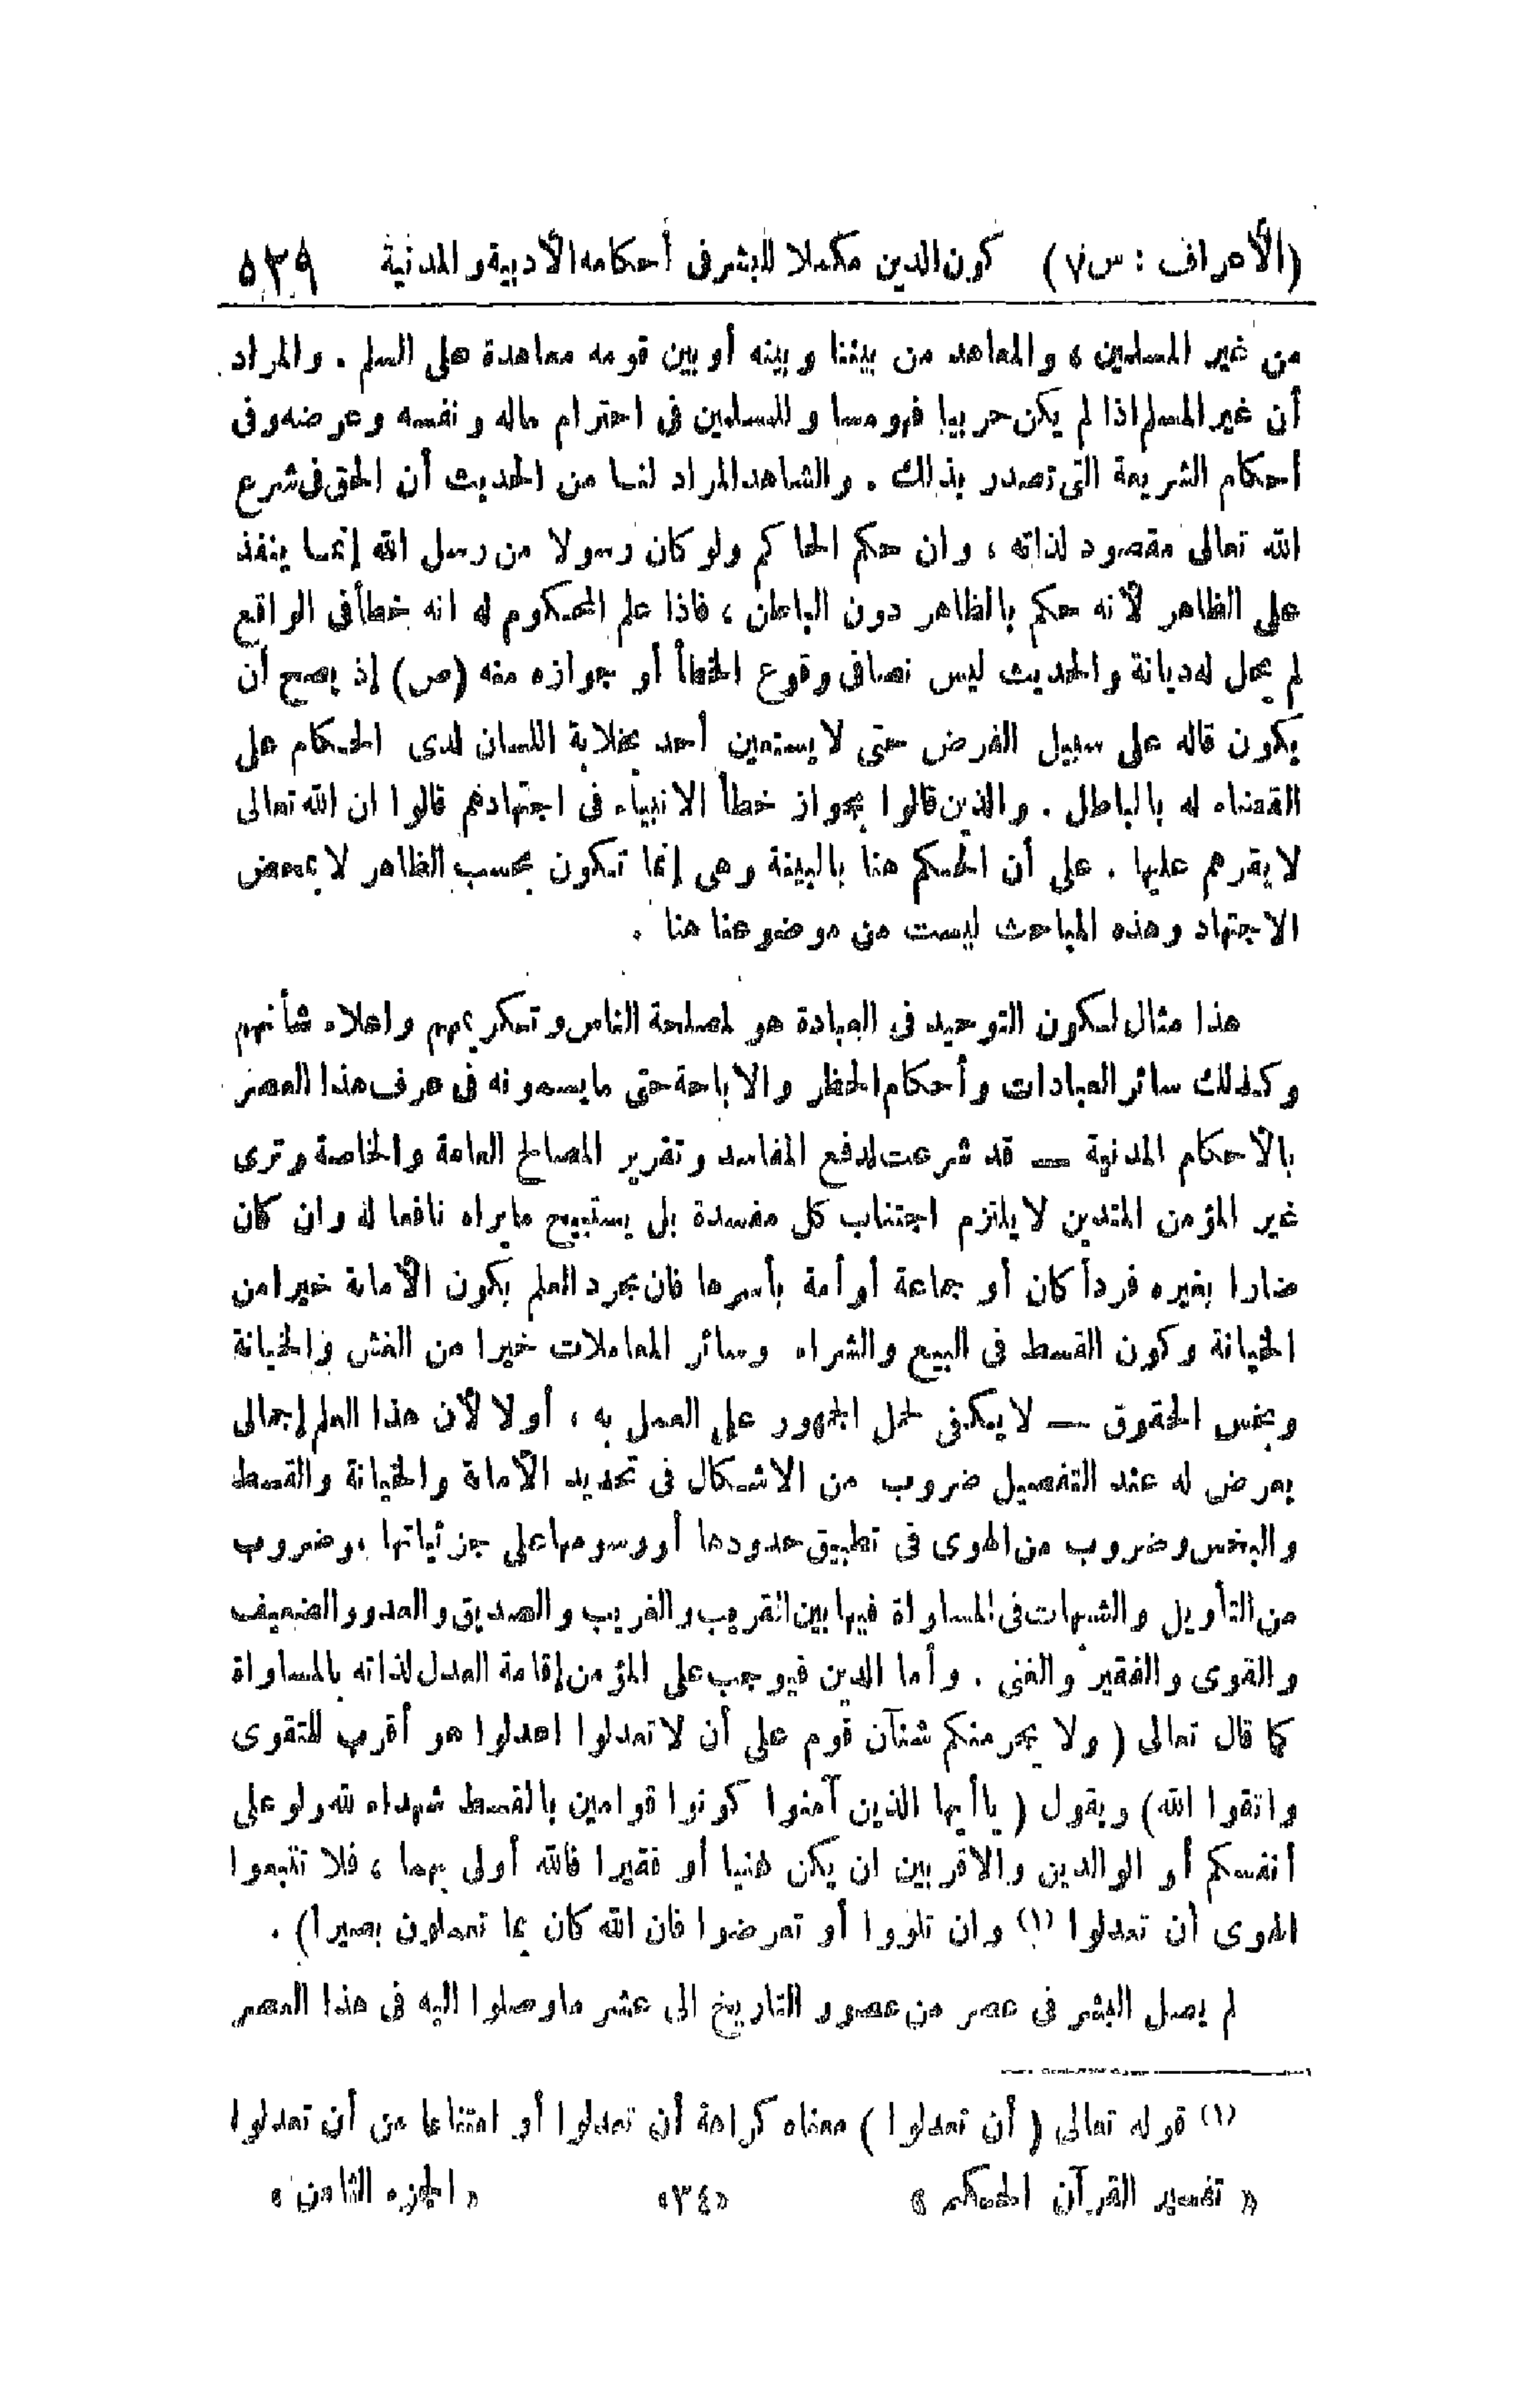 (الأعراف : س٧) كون الدين مكملا للبشر فى أحكامه الأدبية والمدنية ٥٢٩
من غير المسلمين ، والمعاهد من بيننا وبينه أو بين قومه معاهدة على السلم . والمراد
أن غير المسلم اذا لم يكن حربيا فهو مساو للمسلمين فى احترام ماله ونفسه وعرضه وفى
أحكام الشريعة التى تصدر بذلك . والشاهد المراد لنا من الحديث أن الحق فى شرع
الله تعالى مقصود لذاته ، وان حكم الحاكم ولو كان رسولا من رسل الله إنما ينفذ
على الظاهر لأنه حكم بالظاهر دون الباطن ، فاذا علم المحكوم له انه خطأ فى الواقع
لم يحل له ديانة والحديث ليس نصا فى وقوع الخطأ أو جوازه منه (ص) إذ يصح أن
يكون قاله على سبيل الفرض حتى لا يستعين أحد بخلابة اللسان لدى الحكام على
القضاء له بالباطل . والذين قالوا بجواز خطأ الانبياء فى اجتهادهم قالوا ان الله تعالى
لا يقرهم عليها . على أن الحكم هنا بالبينة وهى إنما تكون بحسب الظاهر لا بمحض
الاجتهاد وهذه المباحث ليست من موضوعنا هنا .
هذا مثال لكون التوحيد فى العبادة هو لمصلحة الناس وتكريمهم واعلاء شأنهم
وكذلك سائر العبادات وأحكام الحظر والاباحة حتى ما يسمونه فى عرف هذا العصر
بالأحكام المدنية — قد شرعت لدفع المفاسد وتقرير المصالح العامة والخاصة وترى
غير المؤمن المتدين لا يلتزم اجتناب كل مفسدة بل يستبيح ما يراه نافعا له وان كان
ضارا بغيره فرداً كان أو جماعة أو أمة بأسرها فان مجرد العلم بكون الأمانة خيرا من
الخيانة وكون القسط فى البيع والشراء وسائر المعاملات خيرا من الغش والخيانة
وبخس الحقوق — لا يكفى لحمل الجمهور على العمل به ، أولا لأن هذا العلم إجمالى
يعرض له عند التفصيل ضروب من الاشكال فى تحديد الأمانة والخيانة والقسط
والبخس وضروب من الهوى فى تطبيق حدودها أو رسومها على جزئياتها ، وضروب
من التأويل والشبهات فى المساواة فيها بين القريب والغريب والصديق والعدو والضعيف
والقوى والفقير والغنى . وأما الدين فيوجب على المؤمن إقامة العدل لذاته بالمساواة
كما قال تعالى ( ولا يجرمنكم شنآن قوم على أن لا تعدلوا اعدلوا هو أقرب للتقوى
واتقوا الله) ويقول ( يا أيها الذين آمنوا كونوا قوامين بالقسط شهداء لله ولو على
أنفسكم أو الوالدين والاقربين ان يكن غنيا أو فقيرا فالله أولى بهما ، فلا تتبعوا
الهوى أن تعدلوا (١) وان تلووا أو تعرضوا فان الله كان بما تعملون بصيرا) .
لم يصل البشر فى عصر من عصور التاريخ الى عشر ما وصلوا اليه فى هذا العصر
(١) قوله تعالى ( أن تعدلوا ) معناه كراهة أن تعدلوا أو امتناعا من أن تعدلوا
« تفسير القرآن الحكيم » «٣٤» « الجزء الثامن »